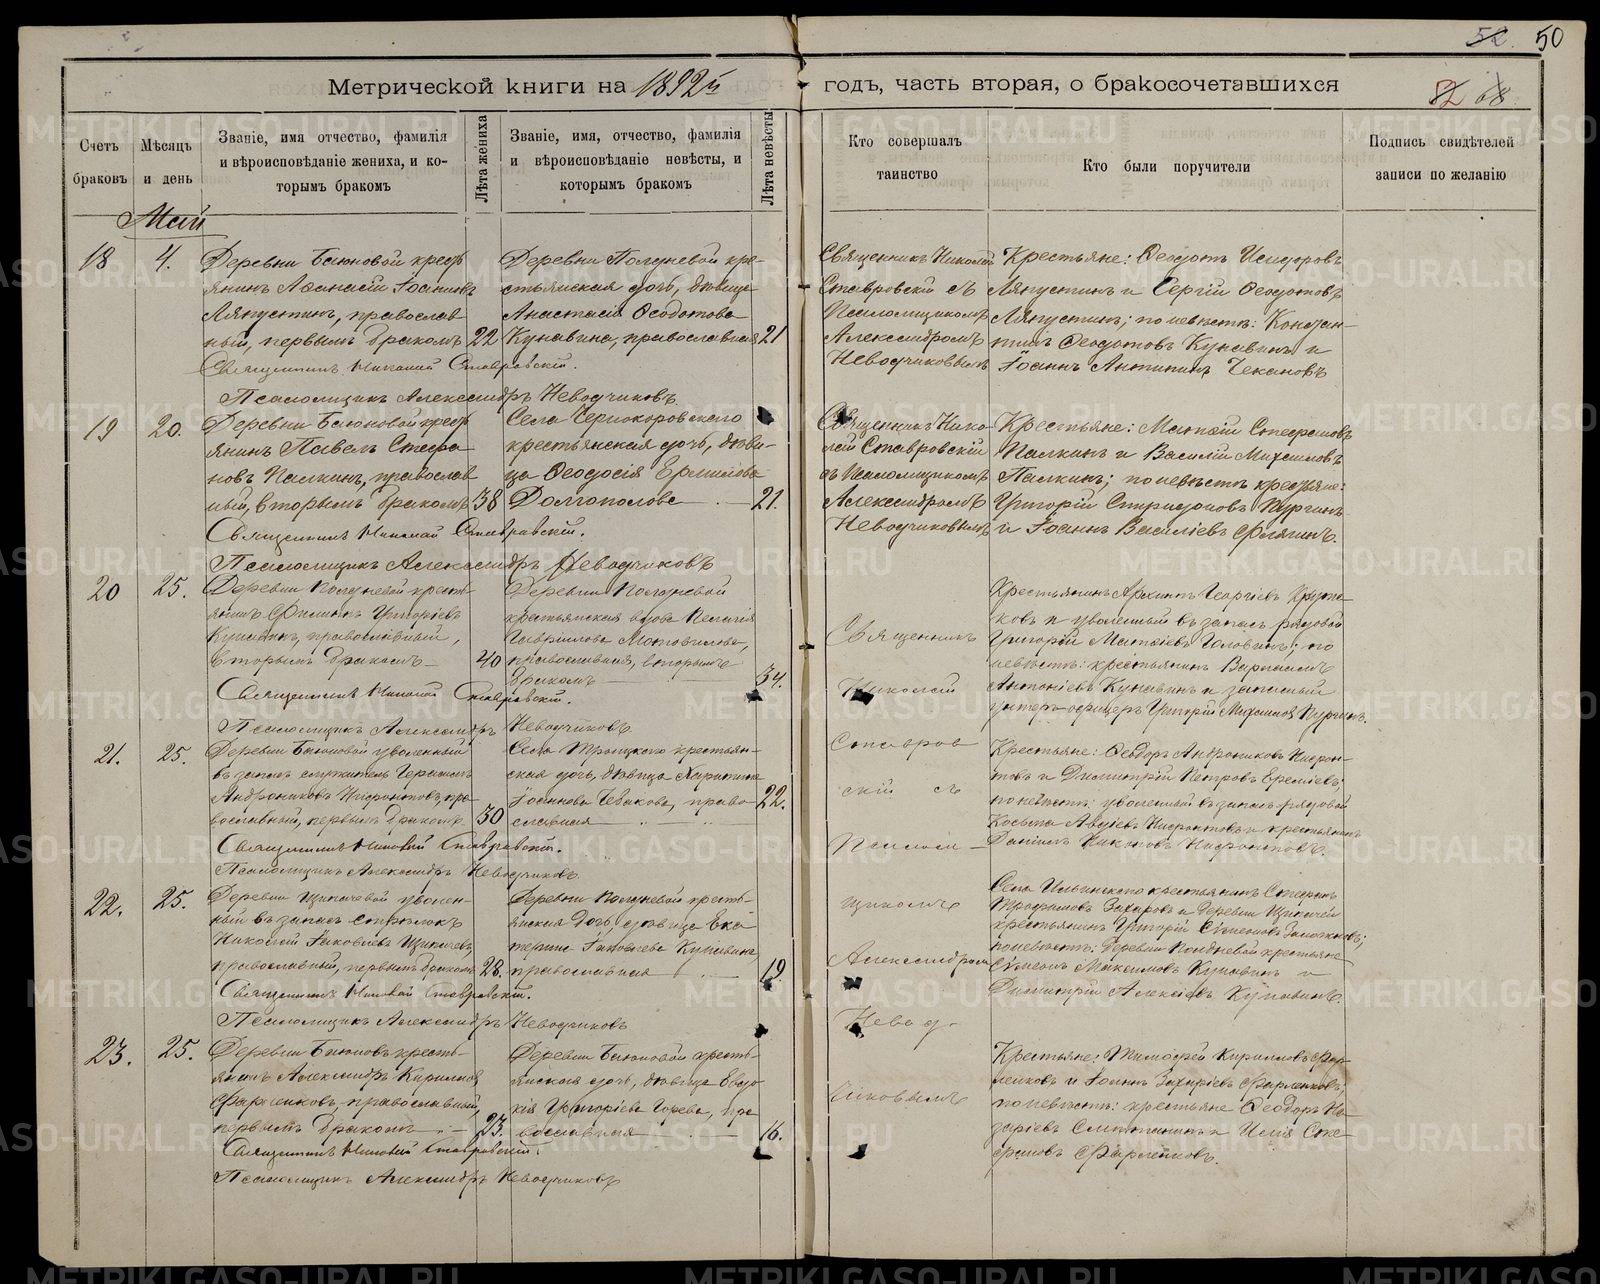 52. 50
Метрической книги на 1892й годъ, часть вторая, о бракосочетавшихся
82 68
Счетъ браковъ
Мѣсяцъ и день
Званіе, имя отчество, фамилія
и вѣроисповѣданіе жениха, и ко-
торымъ бракомъ
Лѣта жениха
Званіе, имя, отчество, фамилія
и вѣроисповѣданіе невѣсты, и
которымъ бракомъ
Лѣта невѣсты
Кто совершалъ
таинство
Кто были поручители
Подпись свидѣтелей
записи по желанію
Май
18 4.
Деревни Баюновой кресть
янинъ Аѳанасій Іоанновъ
Ляпустинъ, православ
ный, первымъ бракомъ 22
Деревни Полдневой кре-
стьянская дочь, дѣвица
Анастасія Ѳеодотова
Кунавина, православная 21
Священникъ Николай
Ставровскій съ
Псаломщикомъ
Александромъ
Неводчиковымъ
Крестьяне: Ѳеодотъ Исидоровъ
Ляпустинъ и Сергій Ѳеодотовъ
Ляпустинъ; по невѣстѣ: Констан-
тинъ Ѳеодотовъ Кунавинъ и
Іоаннъ Антипинъ Чекановъ
Священникъ Николай Ставровскій.
Псаломщикъ Александръ Неводчиковъ.
19 20.
Деревни Баюновой кресть
янинъ Павелъ Стефа
новъ Палкинъ, православ
ный, вторымъ бракомъ 38
Села Чернокоровскаго
крестьянская дочь, дѣви-
ца Ѳеодосія Ермилова
Долгополова 21.
Священникъ Нико-
лай Ставровскій
съ Псаломщикомъ
Александромъ
Неводчиковымъ
Крестьяне: Матѳій Стефановъ
Палкинъ и Василій Михаиловъ
Палкинъ; по невѣстѣ крестьяне:
Григорій Спиридоновъ Кургинъ
и Іоаннъ Василіевъ Флягинъ.
Священникъ Николай Ставровскій.
Псаломщикъ Александръ Неводчиковъ
20 25.
Деревни Полдневой кресть-
янинъ Филиппъ Григоріевъ
Кунавинъ, православный,
вторымъ бракомъ 40
Деревни Полдневой
крестьянская вдова Пелагія
Гавриилова Мотовилова,
православная, вторымъ
бракомъ 34.
Священникъ
Николай
Ставров
скій съ
Псалом-
щикомъ
Александромъ
Невод-
чиковымъ
Григорій Матѳіевъ Головинъ; по
невѣстѣ: крестьянинъ Варлаамъ
Антоніевъ Кунавинъ и запасный
унтеръ-офицеръ Григорій Михаиловъ Кургинъ.
Священникъ Николай Ставровскій.
Псаломщикъ Александръ Неводчиковъ
21. 25.
Деревни Баюновой уволенный
въ запасъ служитель Герасимъ
Андрониковъ Нифонтовъ, пра
вославный, первымъ бракомъ 30
Села Троицкаго крестьян-
ская дочь, дѣвица Харитина
Іоаннова Чебакова, право
славная 22.
Крестьяне: Ѳеодоръ Андрониковъ Нифон-
товъ и Димитрій Петровъ Еремѣевъ;
по невѣстѣ: уволенный въ запасъ рядовой
Косьма Авдіевъ Нифонтовъ и крестьянинъ
Даніилъ Никоновъ Нифонтовъ.
Священникъ Николай Ставровскій.
Псаломщикъ Александръ Неводчиковъ.
22. 25.
Деревни Щипачевой уволен-
ный въ запасъ стрѣлокъ
Николай Іаковлевъ Щипачевъ,
православный, первымъ бракомъ 28.
Деревни Полдневой кресть-
янская дочь, дѣвица Ека
терина Іаковлева Кунавина,
православная 19
Села Ильинскаго крестьянинъ Стефанъ
Трофимовъ Захаровъ и деревни Щипачей
по невѣстѣ: деревни Полдневой крестьяне
Симеонъ Максимовъ Кунавинъ и
Димитрій Алексіевъ Кунавинъ.
Священникъ Николай Ставровскій.
Псаломщикъ Александръ Неводчиковъ
23. 25.
Деревни Баюновъ кресть-
янинъ Александръ Кирилловъ
Фарленковъ, православный,
первымъ бракомъ 23.
Деревни Баюновой кресть-
янская дочь, дѣвица Евдо
кія Григоріева Горева, пра
вославная 16.
Крестьяне: Тимоѳей Кирилловъ Фар-
ленковъ и Іоаннъ Захаріевъ Фарленковъ;
по невѣстѣ: крестьяне Ѳеодоръ На-
заріевъ Сметанинъ и Илія Сте-
фановъ Фарленковъ.
Священникъ Николай Ставровскій.
Псаломщикъ Александръ Неводчиковъ
METRIKI.GASO-URAL.RU